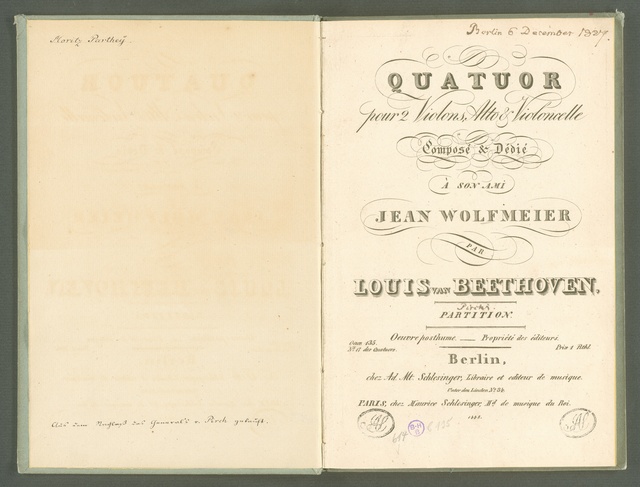 Moritz Parthey.
Aus dem Nachlaß des Generals v. Pirch gekauft.
Berlin 6 December 1837.
QUATUOR
pour 2 Violons, Alto & Violoncelle
Composé & Dédié
À SON AMI
JEAN WOLFMEIER
PAR
LOUIS VAN BEETHOVEN.
PARTITION.
Oeuvre posthume. Propriété des éditeurs.
Oeuv. 135.
No. 17 des Quatuors.
Prix 1 Rthl.
Berlin,
chez Ad. Mt. Schlesinger, Libraire et editeur de musique.
Unter den Linden No. 34.
PARIS, chez Maurice Schlesinger, Md. de musique du Roi.